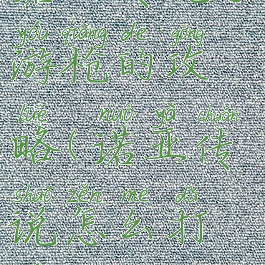 yóu qiāng de gōng
游抢的攻
lüè nuò yà chuán
略(诺亚传
shuō zěn me dǎ
说怎么打